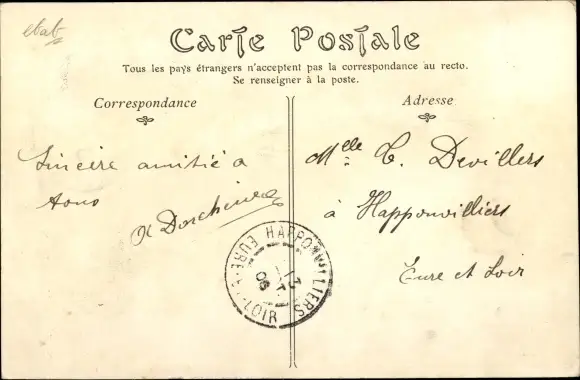 Carte Postale
Tous les pays étrangers n'acceptent pas la correspondance au recto.
Se renseigner à la poste.
Correspondance
Adresse
Sincère amitié a
tous
Melle C. Devillers
à Happonvilliers
Eure et Loir
HAPPONVILLIERS
EURE-&-LOIR
06